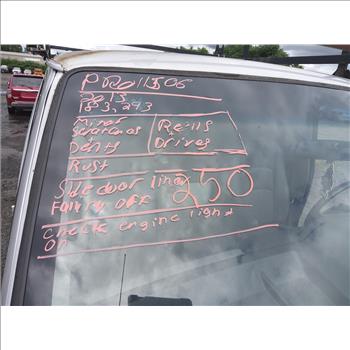 PR011506
2013
183,293
Minor
Scratches
+
Dents
Rolls
+
Drives
Rust
Side door liner
Falling OFF
250
Check engine light
on